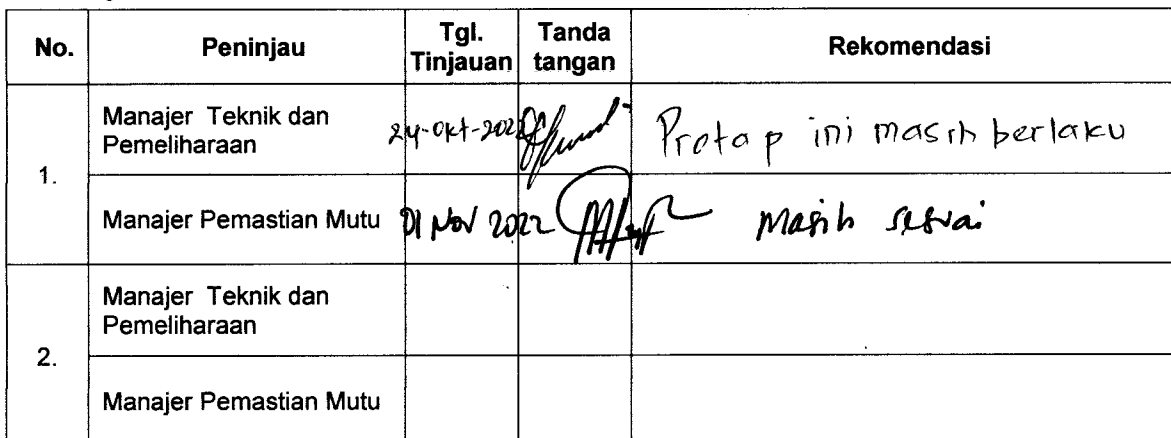 No. Peninjau Tgl. Tinjauan Tanda tangan Rekomendasi
1.
Manajer Teknik dan Pemeliharaan 24-Okt-2022 Protap ini masih berlaku
Manajer Pemastian Mutu 01 Nov 2022 Masih sesuai
2.
Manajer Teknik dan Pemeliharaan
Manajer Pemastian Mutu